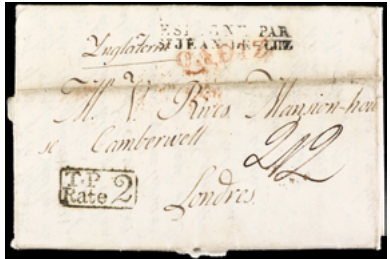 ESPAGNE PAR
ST JEAN-DE-LUZ
Inglaterra
CADIZ
M. V. Rives, Mansion-hou
se Camberwell
2/2
T.P.
Rate 2
Londres.